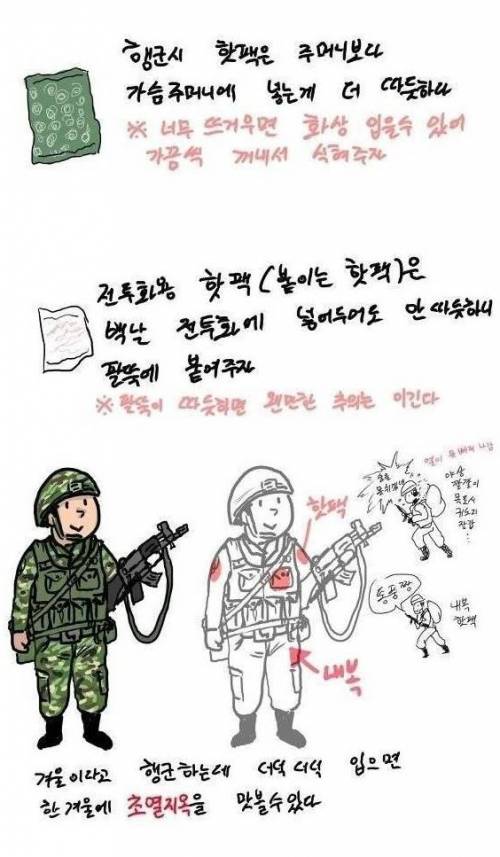 행군시 핫팩은 주머니보다
가슴주머니에 넣는게 더 따듯하다
※ 너무 뜨거우면 화상 입을수 있어
가끔씩 꺼내서 식혀주자
전투화용 핫팩(붙이는 핫팩)은
백날 전투화에 넣어두어도 안따듯하니
팔뚝에 붙여주자
※ 팔뚝이 따듯하면 왠만한 추위는 이긴다
핫팩
내복
열이 못 빠져 나감
야상
깔깔이
목토시
귀도리
장갑
통풍짱
내복
핫팩
겨울이라고 행군하는데 덕지덕지 입으면
한겨울에 초열지옥을 맛볼수있다